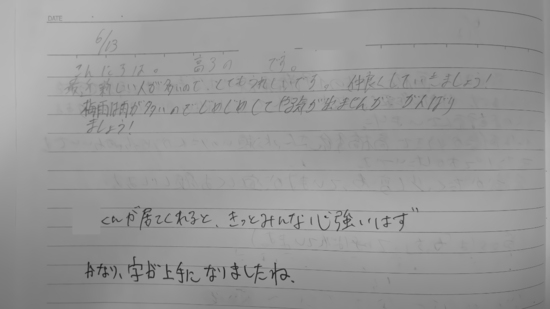 DATE
6/13
こんにちは。 です。
新しい人が多いので、とてもうれしいです。仲良くしていきましょう!
梅雨は雨が多いのでじめじめして元気が出ませんが がんばり
ましょう!
くんが居てくれると、きっとみんな心強いはず
かなり、字が上手になりましたね、